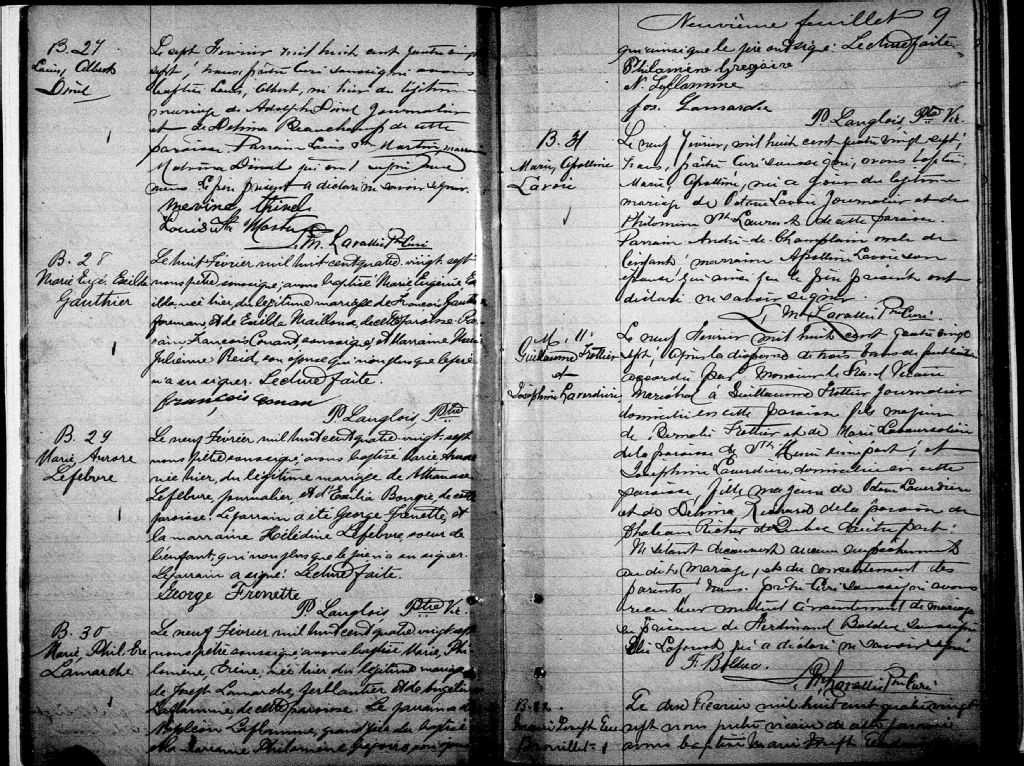 B. 27
Louis, Albert
Dinel
1
Le sept Février mil huit cent quatre vingt
sept; nous, prêtre Curé soussigné avons
baptisé Louis, Albert, né hier du légitime
mariage de Adolphe Dinel Journalier
et de Delima Beauchamp de cette
paroisse. Parrain Louis St Martin marraine
Malvina Dinel qui ont signé avec
nous. Le père présent a déclaré ne savoir signer.
mevina Dinel
Louis St Martin
M. Lavallée Ptre Curé
B. 28
Marie Eugé. Exilda
Gauthier
1
Le huit Février mil huit cent quatre vingt sept
nous prêtre soussigné, avons baptisé Marie Eugénie Ex
ilda, née hier du légitime mariage de François Gauthier
foreman, et de Exilda Mailloux, de cette paroisse. Par
rain François Conant soussigné, et Marraine Marie
Julienne Reid, son épouse qui non plus que le père
n'a su signer. Lecture faite.
françois conan
P. Langlois, Ptre
B. 29
Marie, Aurore
Lefebvre
1
Le neuf Février mil huit cent quatre vingt sept
nous prêtre soussigné, avons baptisé Marie Aurore
née hier, du légitime mariage de Athanase
Lefebvre, journalier et d'Exilia Bougie, de cette
paroisse. Le parrain a été George Frenette, et
la marraine Hélédine Lefebvre, soeur de
l'enfant, qui non plus que le père n'a su signer.
Le parrain a signé. Lecture faite.
George Frenette
P. Langlois, Ptre Vic.
B. 30
Marie, Phil. Ere
Lamarche
1
Le neuf Février mil huit cent quatre vingt sept
nous prêtre soussigné avons baptisé Marie, Phi
lomène, Erène, née hier du légitime mariage
de Joseph Lamarche, ferblantier et de Angelina
Laflamme, de cette paroisse. Le parrain a été
Napoléon Laflamme, grand père du baptisé
et la marraine Philomène Grégoire, son épouse
Neuvième feuillet 9
qui ainsi que le père ont signé. Lecture faite.
Philomène Gregoire
N. Laflamme
Jos. Lamarche
P. Langlois Ptre Vic.
B. 31
Marie, Apolline
Lavoie
1
Le neuf Février, mil huit cent quatre vingt sept;
nous, prêtre Curé soussigné, avons baptisé,
Marie, Apolline, née ce jour du légitime
mariage de Pierre Lavoie Journalier et de
Philomène St Laurent de cette paroisse.
Parrain André de Champlain oncle de
l'enfant, marraine Apolline Lavoie son
épouse qui ainsi que le père présent ont
déclaré ne savoir signer.
M. Lavallée Ptre Curé.
M. 11
Guillaume Trottier
et
Joséphine Laverdure
Le neuf Février mil huit cent quatre vingt
sept, après la dispense de trois bans de publication
accordée par Monsieur le Grand Vicaire
Maréchal à Guillaume Trottier Journalier
domicilié en cette paroisse fils majeur
de et de Marie
de la paroisse de St Henri d'une part; et
Joséphine Laverdure, domiciliée en cette
paroisse, fille majeure de Laverdière
et de Delima Richard de la paroisse de
Chateau Richer de Québec d'autre part:
N'étant découvert aucun empêchement
au dit mariage, et du consentement des
parents nous prêtre Curé soussigné avons
reçu leur mutuel consentement de mariage
en présence de Ferdinand Bolduc soussigné
qui a déclaré ne savoir signer
F. Bolduc.
M. Lavallée Ptre Curé
B. 32
Marie Joseph
Brouillet 1
Le dix Février mil huit cent quatre vingt
sept nous prêtre vicaire de cette paroisse
avons baptisé Marie Joseph